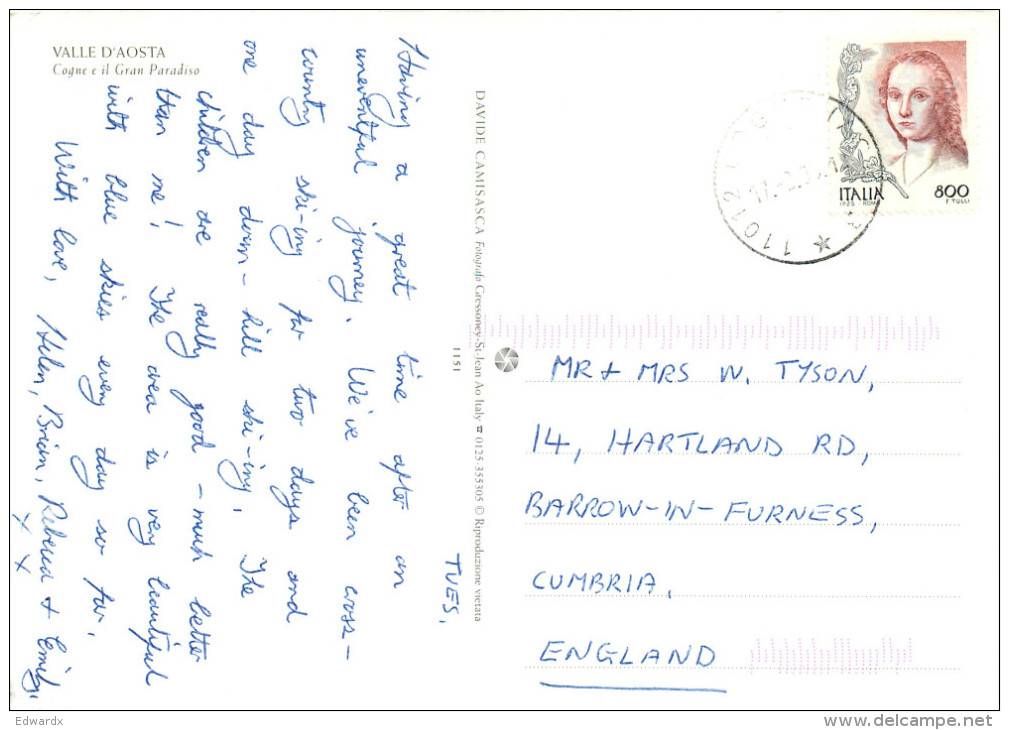 VALLE D'AOSTA
Cogne e il Gran Paradiso
TUES.
Having a great time after an
uneventful journey. We've been cross-
country ski-ing for two days and
one day down-hill ski-ing. The
children are really good - much better
than me! The area is very beautiful
with blue skies every day so far.
With love, Helen, Brian, Rebecca + Emily.
X X
DAVIDE CAMISASCA Fotografo Gressoney-St-Jean Ao Italy ¤ 0125-355305 © Riproduzione vietata
1151
ITALIA 800
I.P.Z.S. ROMA F. TULLI
11012
MR + MRS W. TYSON,
14, HARTLAND RD,
BARROW-IN-FURNESS,
CUMBRIA.
ENGLAND
Edwardx
www.delcampe.net